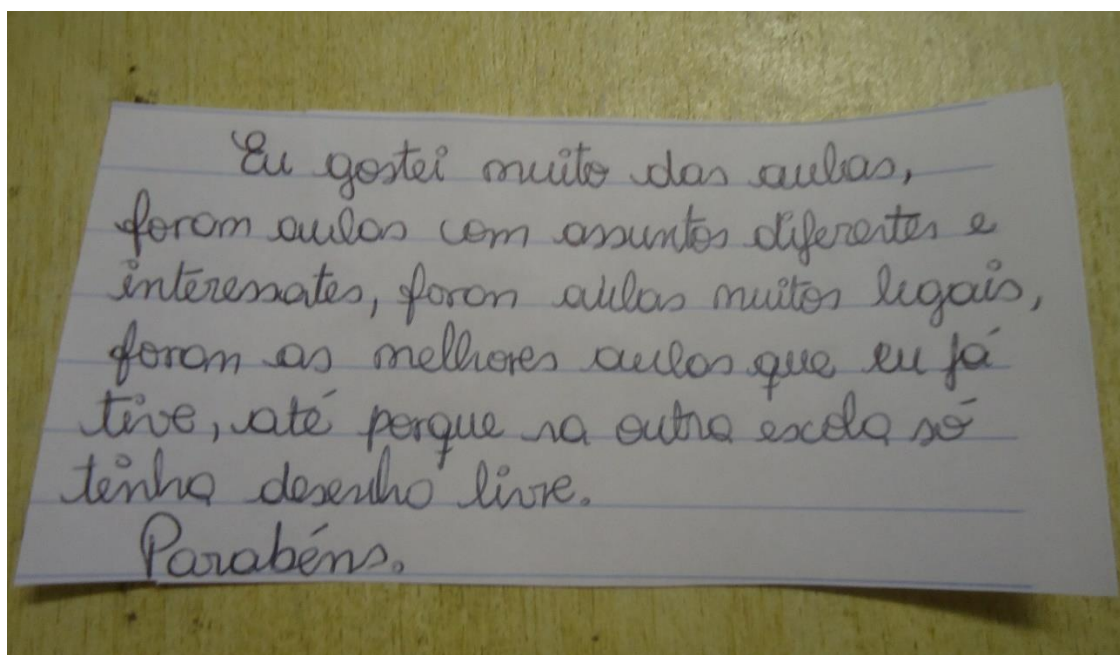 Eu gostei muito das aulas,
foram aulas com assuntos diferentes e
interessates, foram aulas muitos legais,
foram as melhores aulas que eu já
tive, até porque na outra escola só
tinha desenho livre.
Parabéns.